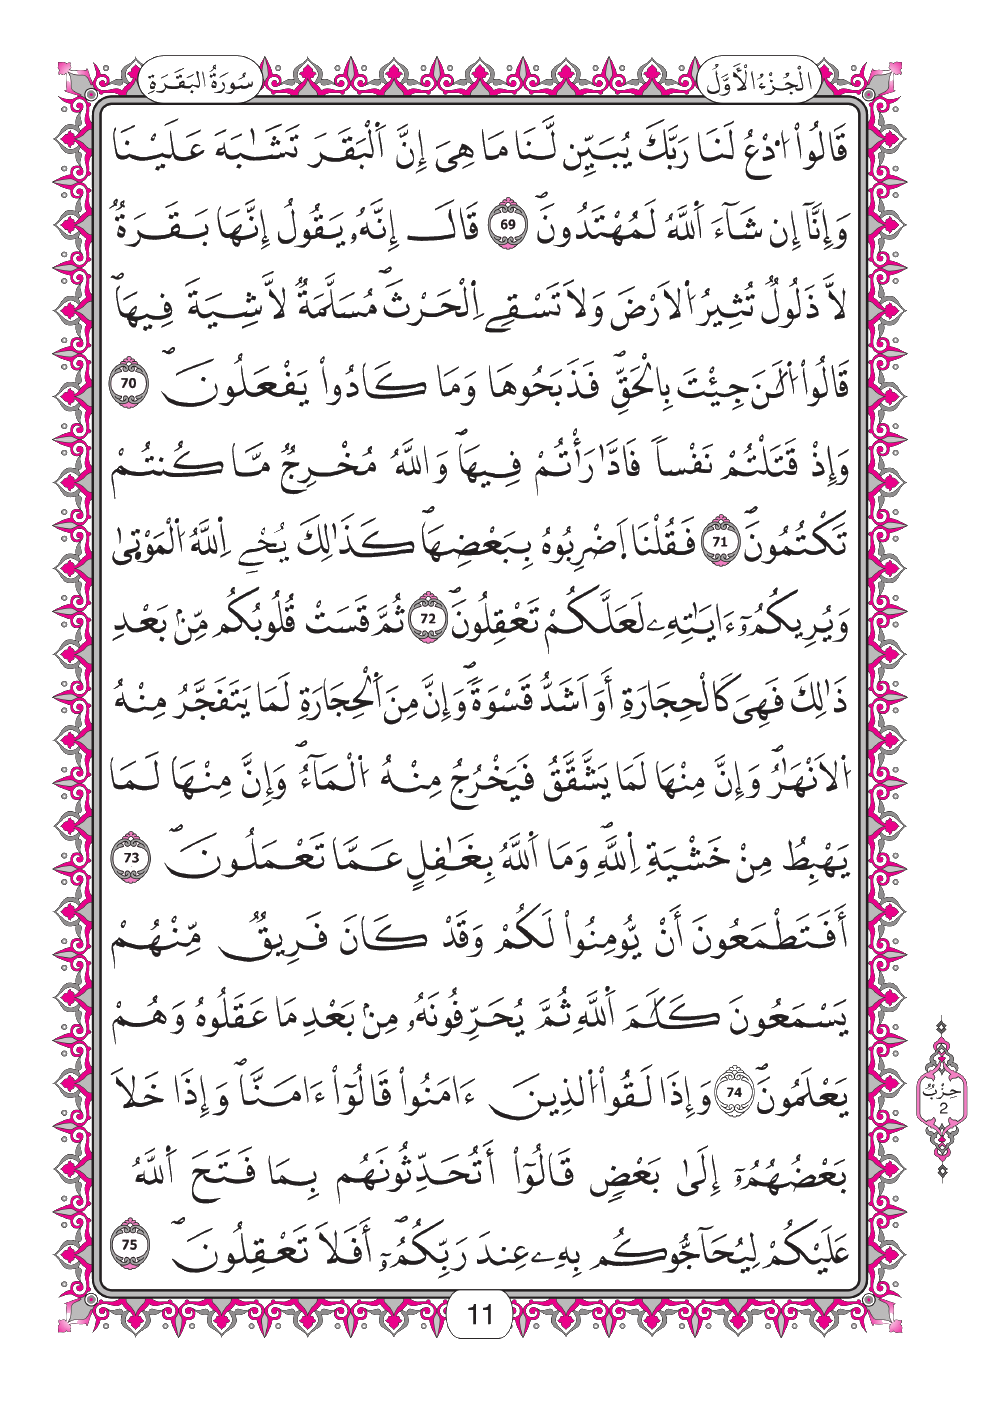 الْجُزْءُ الْأَوَّلُ
سُورَةُ البَقَرَةِ
قَالُواْ اُ۟دْعُ لَنَا رَبَّكَ يُبَيِّن لَّنَا مَا هِىَ إِنَّ اَ۬لْبَقَرَ تَشَٰبَهَ عَلَيْنَا
وَإِنَّآ إِن شَآءَ اَ۬للَّهُ لَمُهْتَدُونَۖ 69 قَالَ إِنَّهُۥ يَقُولُ إِنَّهَا بَقَرَةٌ
لَّا ذَلُولٌ تُثِيرُ اُ۬لَارْضَ وَلَا تَسْقِے اِ۬لْحَرْثَۖ مُسَلَّمَةٌ لَّا شِيَةَ فِيهَاۖ
قَالُواْ اُ۬لَٰنَ جِيْتَ بِالْحَقِّۖ فَذَبَحُوهَا وَمَا كَادُواْ يَفْعَلُونَۖ 70
وَإِذْ قَتَلْتُمْ نَفْساٗ فَادَّٰرَأْتُمْ فِيهَاۖ وَاللَّهُ مُخْرِجٌ مَّا كُنتُمْ
تَكْتُمُونَۖ 71 فَقُلْنَا اَضْرِبُوهُ بِبَعْضِهَاۖ كَذَٰلِكَ يُحْےِ اِ۬للَّهُ اُ۬لْمَوْتۭيٰ
وَيُرِيكُمُۥٓ ءَايَٰتِهِۦ لَعَلَّكُمْ تَعْقِلُونَۖ 72 ثُمَّ قَسَتْ قُلُوبُكُم مِّنۢ بَعْدِ
ذَٰلِكَ فَهِىَ كَالْحِجَارَةِ أَوَ اَشَدُّ قَسْوَةٗۖ وَإِنَّ مِنَ اَ۬لْحِجَارَةِ لَمَا يَتَفَجَّرُ مِنْهُ
اُ۬لَانْهَٰرُۖ وَإِنَّ مِنْهَا لَمَا يَشَّقَّقُ فَيَخْرُجُ مِنْهُ اُ۬لْمَآءُۖ وَإِنَّ مِنْهَا لَمَا
يَهْبِطُ مِنْ خَشْيَةِ اِ۬للَّهِۖ وَمَا اَ۬للَّهُ بِغَٰفِلٍ عَمَّا تَعْمَلُونَۖ 73
أَفَتَطْمَعُونَ أَنْ يُّومِنُواْ لَكُمْ وَقَدْ كَانَ فَرِيقٌ مِّنْهُمْ
يَسْمَعُونَ كَلَٰمَ اَ۬للَّهِ ثُمَّ يُحَرِّفُونَهُۥ مِنۢ بَعْدِ مَا عَقَلُوهُ وَهُمْ
يَعْلَمُونَۖ 74 وَإِذَا لَقُواْ اُ۬لذِينَ ءَامَنُواْ قَالُوٓاْ ءَامَنَّاۖ وَإِذَا خَلَا
بَعْضُهُمُۥٓ إِلَىٰ بَعْضٍ قَالُوٓاْ أَتُحَدِّثُونَهُم بِمَا فَتَحَ اَ۬للَّهُ
عَلَيْكُمْ لِيُحَآجُّوكُم بِهِۦ عِندَ رَبِّكُمُۥٓۖ أَفَلَا تَعْقِلُونَۖ 75
حِزْبُ
2
11